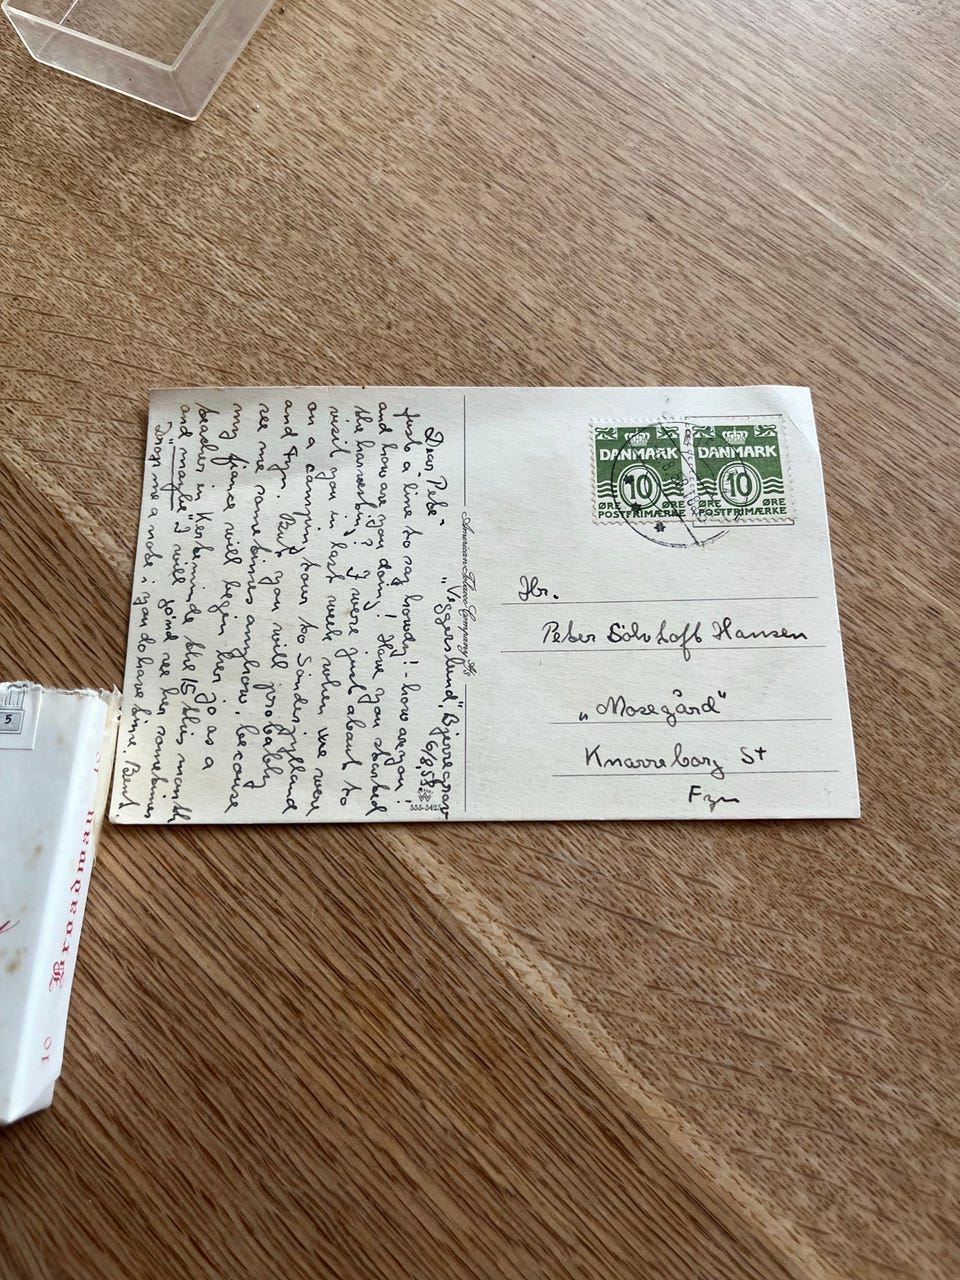 "Veggerslund", Bjerregrav
6/8,58.
Dear Pete-
Just a line to say howdy! - how are you!
and how are you doing! Have you started
the harvesting? I were just about to
visit you in last week when we were
on a camping tour to Sønderjylland
and Fyn. But you will probably
see me sometimes anyhow, because
my fiancé will begin her jo as a
teacher in Kerteminde the 15 this month
and "maybe" I will go and see her sometimes
Drop me a note i you do have time. Bent
American Tobacco Company A/S
DANMARK
10
ØRE ØRE
POSTFRIMÆRKE
DANMARK
10
ØRE ØRE
POSTFRIMÆRKE
Hr.
Peter Hansen
"Mosegård"
Knarreborg St
Fyn
5
Broadman
10